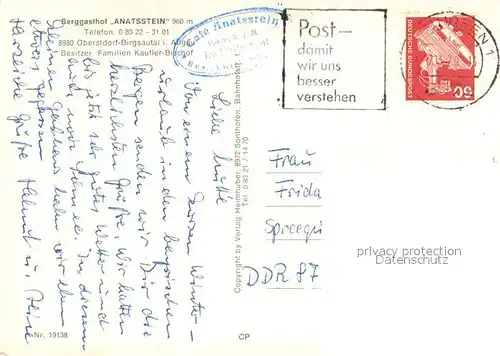 Berggasthof „ANATSSTEIN" 960 m
Telefon: 0 83 22 - 31 01
8980 Oberstdorf-Birgsautal i. Allgäu
Besitzer Familien Kaufler-Bischof
Post–
damit
wir uns
besser
verstehen
DEUTSCHE BUNDESPOST
50
Liebe Mutti
Von einem kurzen Winter-
urlaub in den bayrischen
Bergen senden wir Dir die
herzlichsten Grüße. Wir hatten
bis jetzt sehr gutes Wetter und
auch viel Schnee. In diesem
kleinen Gasthaus haben wir eben
etwas gegessen
Herzliche Grüße Helmut u.
Copyright by Verlag Heimhuber, 8972 Sonthofen, Bahnhofstr.
Tel. 0 83 21 / 14 70
Frau
Frida
Spreegu
DDR 87
privacy protection
Datenschutz
Nr. 19138
CP